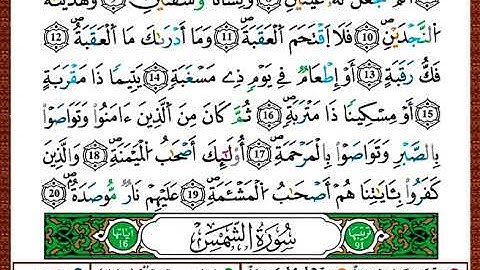 أَلَمْ نَجْعَل لَّهُۥ عَيْنَيْنِ ۝ وَلِسَانًا وَشَفَتَيْنِ ۝ وَهَدَيْنَٰهُ
ٱلنَّجْدَيْنِ ۝10 فَلَا ٱقْتَحَمَ ٱلْعَقَبَةَ ۝11 وَمَآ أَدْرَىٰكَ مَا ٱلْعَقَبَةُ ۝12
فَكُّ رَقَبَةٍ ۝13 أَوْ إِطْعَٰمٌ فِى يَوْمٍ ذِى مَسْغَبَةٍ ۝14 يَتِيمًا ذَا مَقْرَبَةٍ
۝15 أَوْ مِسْكِينًا ذَا مَتْرَبَةٍ ۝16 ثُمَّ كَانَ مِنَ ٱلَّذِينَ ءَامَنُوا۟ وَتَوَاصَوْا۟
بِٱلصَّبْرِ وَتَوَاصَوْا۟ بِٱلْمَرْحَمَةِ ۝17 أُو۟لَٰٓئِكَ أَصْحَٰبُ ٱلْمَيْمَنَةِ ۝18 وَٱلَّذِينَ
كَفَرُوا۟ بِـَٔايَٰتِنَا هُمْ أَصْحَٰبُ ٱلْمَشْـَٔمَةِ ۝19 عَلَيْهِمْ نَارٌ مُّؤْصَدَةٌۢ ۝20
ترتيبها 91 سُورَةُ الشَّمْسِ آياتها 16